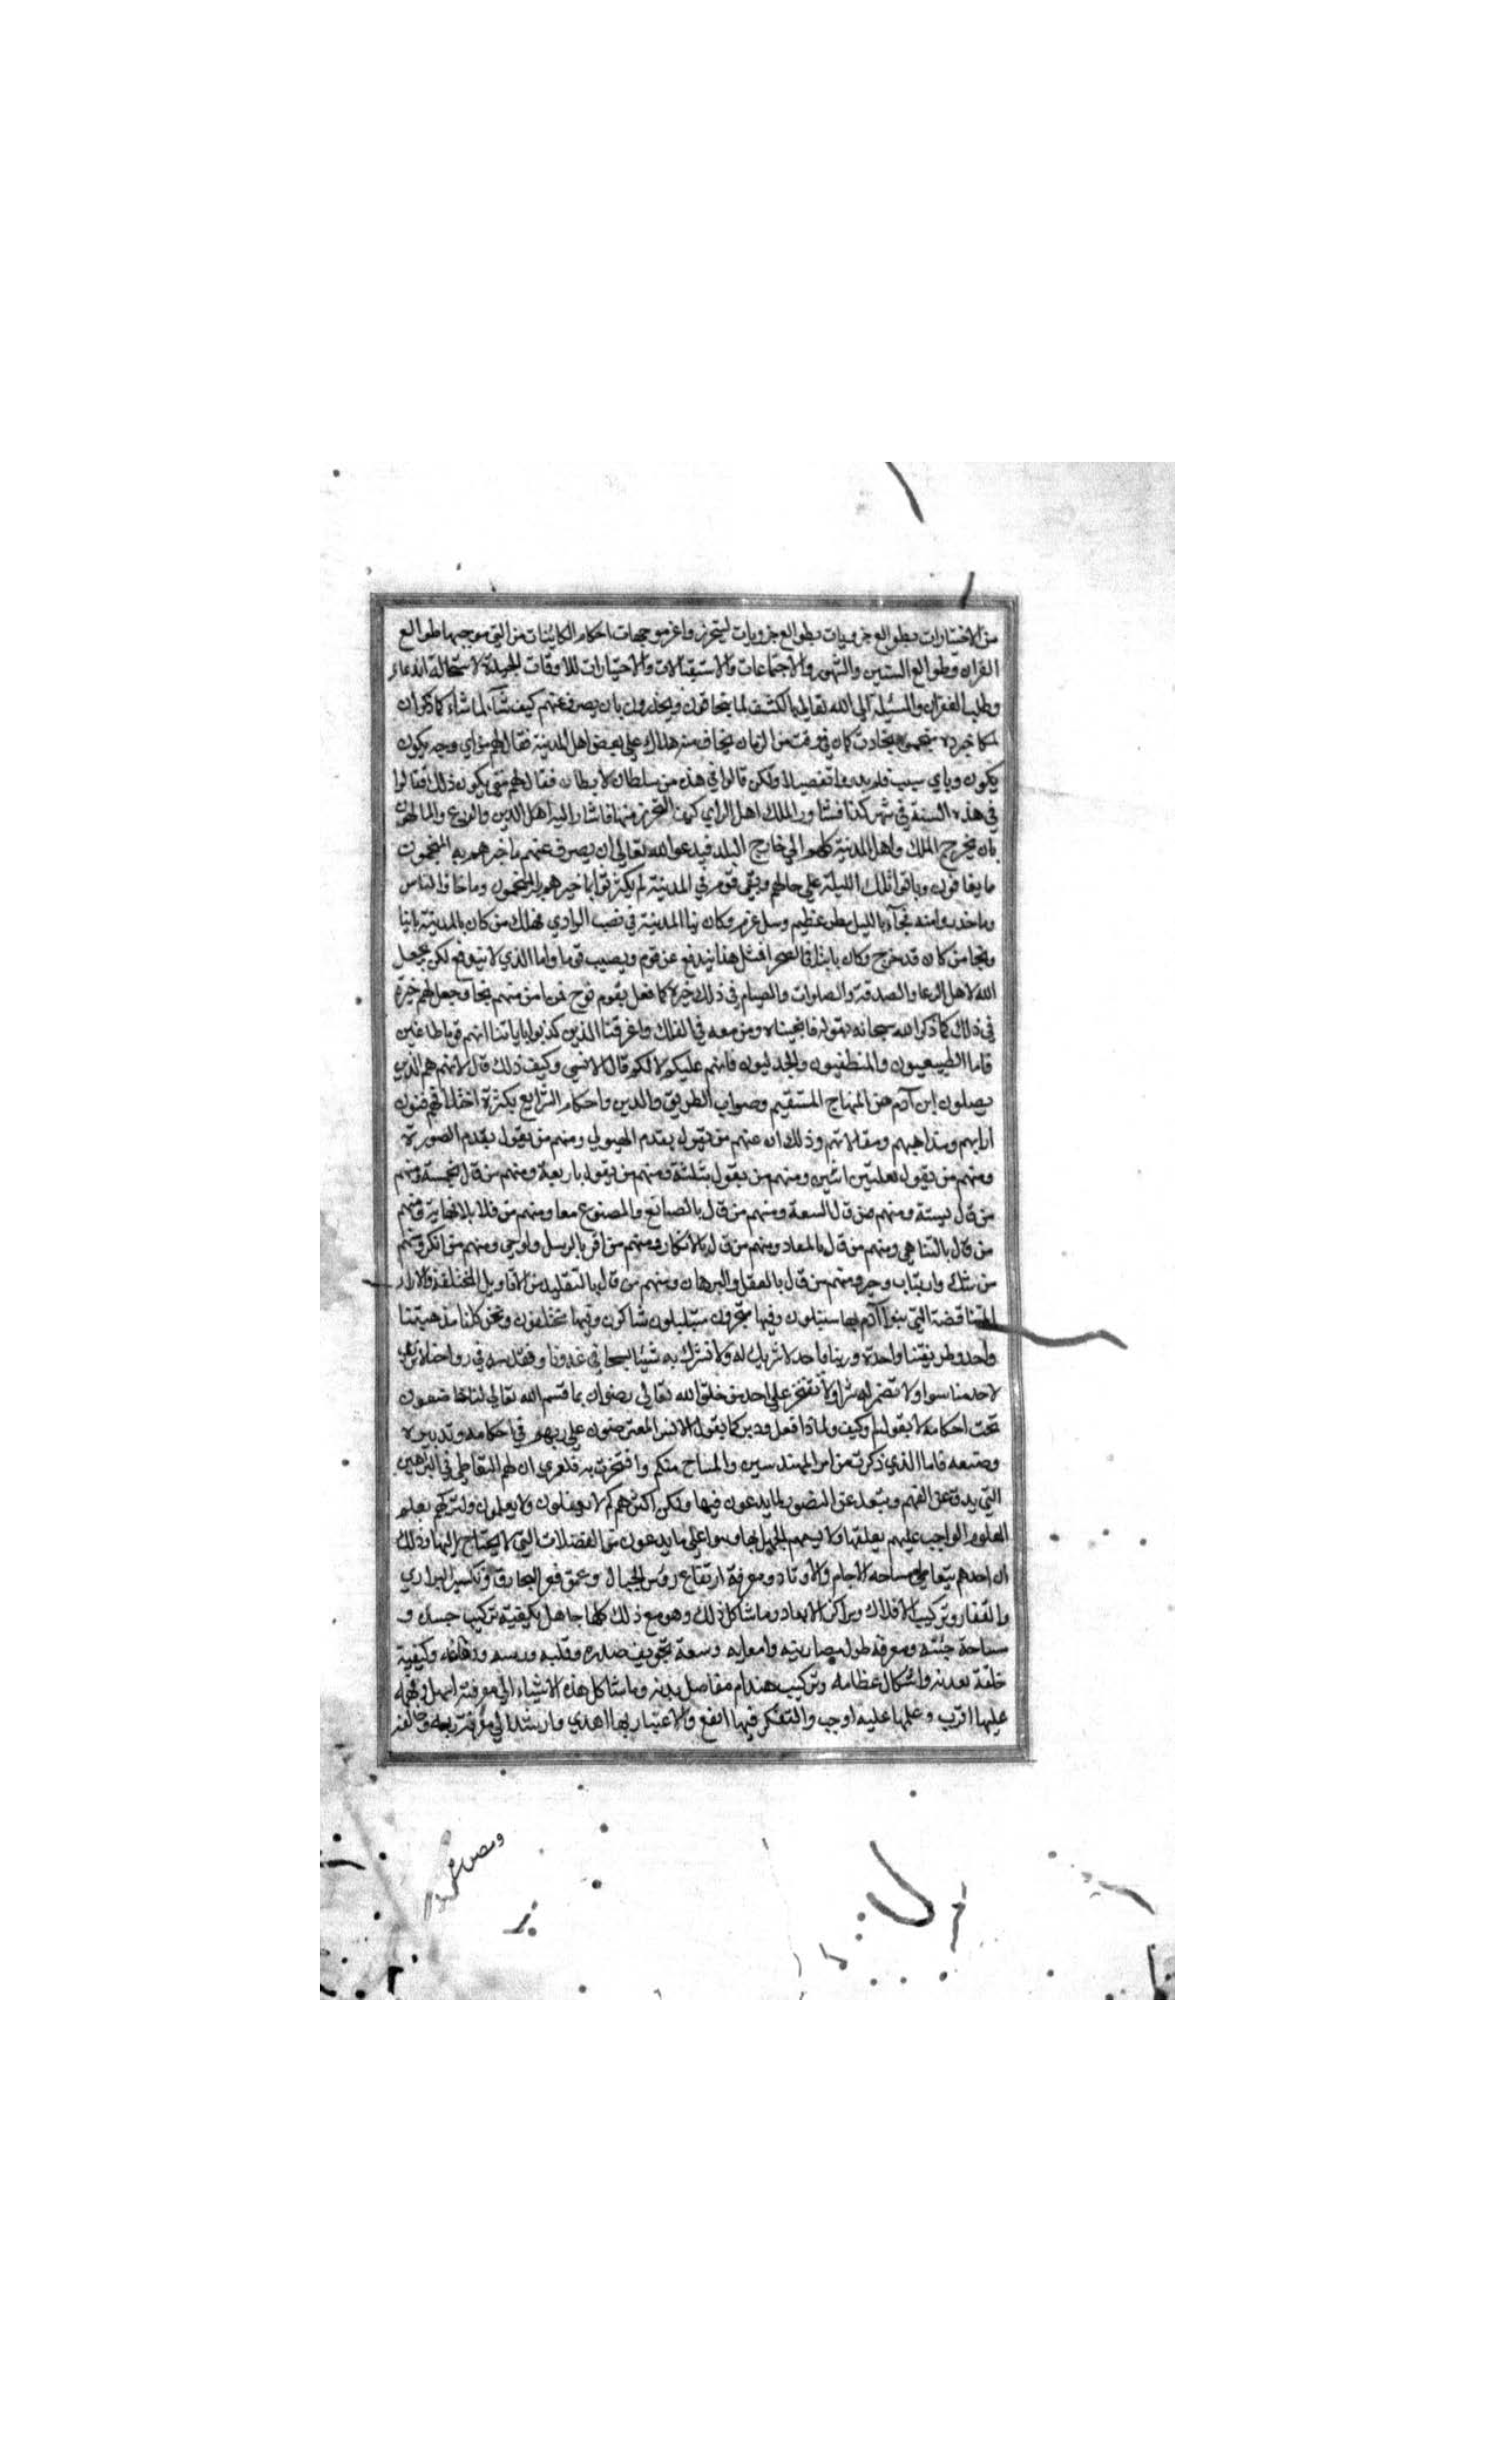 من الاختيارات بطوالع جزويات بطوالع جزويات ليتحرز واعزموجبات احكام الكاينات من التي موجبها طوالع
القران وطوالع السنين والشهور والاجتماعات والاستقبالات والاختيارات للاوقات الجيدة لاستحالة الدعاء
وطلب الغفران والمسئلة الى الله تعالى بالكشف لما يخافون ويحذرون بان يصرف عنهم كيف شاء لما شاء كما ذكر ان
ملكا خبره منجموه بحادث كان في وقت من الزمان يخاف منه هلاك على بعض اهل المدينة فقال لهم من اي وجه يكون
يكون وباي سبب فلم يدروا تفصيله ولكن قالوا في هذه من سلطان لا يطاق فقال لهم متى يكون ذلك فقالوا
في هذه السنة في شهر كذا فشاور الملك اهل الراي كيف التحرز منها فاشار اليه اهل الدين والورع والمالهون
بان يخرج الملك واهل المدينة كلهم الى خارج البلد فيدعو الله تعالى ان يصرف عنهم ما خبرهم به المنجمون
ما يخافون وباتوا تلك الليلة على حالهم وبقي قوم في المدينة لم يكترثوا بما خبرهم به المنجمون وما خافوا الناس
وما حذروا منه فجآء بالليل مطر عظيم وسيل عرم وكان بنا المدينة في مصب الوادي فهلك من كان بالمدينة باتيا
ونجا من كان قد خرج وكان بايتا في الصحرا فمثل هذا يندفع عن قوم ويصيب قوما واما الذي لا يندفع لكن يجعل
الله لاهل الدعا والصدقة والصلوات والصيام في ذلك خيرة كما فعل بقوم نوح من امن منهم نجا وجعل لهم خيرة
في ذلك كما ذكر الله سبحانه بقوله فانجيناه ومن معه في الفلك واغرقنا الذين كذبوا باياتنا انهم قوما طاغين
فاما الطبيعيون والمنطقيون والجدليون فانهم عليكم لا لكم قال الانسي وكيف ذلك قال لانهم هم الذين
يضلون ابن آدم عن المنهاج المستقيم وصواب الطريق والدين واحكام الشرايع بكثرة اختلافهم فنون
ارايهم ومذاهبهم ومقالاتهم وذلك ان منهم من يقول بقدم الهيولي ومنهم من يقول بقدم الصورة
ومنهم من يقول بعلتين اثنين ومنهم من يقول بثلثة ومنهم من يقول باربعة ومنهم من قال بخمسة ومنهم
من قال بستة ومنهم من قال السعة ومنهم من قال بالصانع والمصنوع معا ومنهم من قال بلا نهاية ومنهم
من قال بالتناهي ومنهم من قال بالمعاد ومنهم من قال بالانكار ومنهم من اقر بالرسل والوحي ومنهم من انكر ومنهم
من شك وارتاب وحير ومنهم من قال بالعقل والبرهان ومنهم من قال بالتقليد من الاقاويل المختلفة والاراء
المتناقضة التي بنوا آدم بها مبتلون وفيها متحيرون متبلبلون شاكون وفيها مختلفون ونحن كلنا مذهبنا
واحد وطريقتنا واحدة وربنا واحد لا شريك له ولا نشرك به شيئا نسبحه في غدونا ونقدسه في رواحنا لا نريد
لاحد منا سوا ولا نضمر له شرا ولا نفتخر على احد من خلق الله تعالى رضوان بما قسم الله تعالى لنا خاضعون
تحت احكامه لا نقول لم وكيف ولماذا فعل ودبر كما يقول الانس المعترضون على ربهم في احكامه وتدبيره
وصنعه فاما الذي ذكرت من امر المهندسين والمساح منكم وافتخرت به فلعمري ان لهم التعاطي في البراهين
التي يدق عن الفهم ويبعد عن التصور لما يدعون فيها ولكن اكثرهم لا يعقلون ولا يعلمون ولتركهم تعلم
العلوم الواجب عليهم تعلمها ولا يسعهم الجهل بها وسوا على ما يدعون من الفضلات التي لا يحتاج اليها وذلك
ان احدهم يتعاطى مساحة الاجام والاوتاد ومعرفة ارتفاع روس الجبال وعمق قعر البحار وتكسير البراري
والقفار وتركيب الافلاك ومراكز الابعاد وما شاكل ذلك وهو مع ذلك كلها جاهل بكيفية تركيب جسده و
مساحة جثته ومعرفة طول مصارينه وامعايه وسعة تجويف صدره وقلبه وريته ودماغه وكيفية
خلقة معدته واشكال عظامه وتركيب هندام مفاصل بدنه وما شاكل هذه الاشياء التي معرفته اسهل وفهمه
عليها اقرب وعلمها عليه اوجب والتفكر فيها انفع والاعتبار بها اهدي وارشد الى معرفة ربه وخالقه
ومصوره